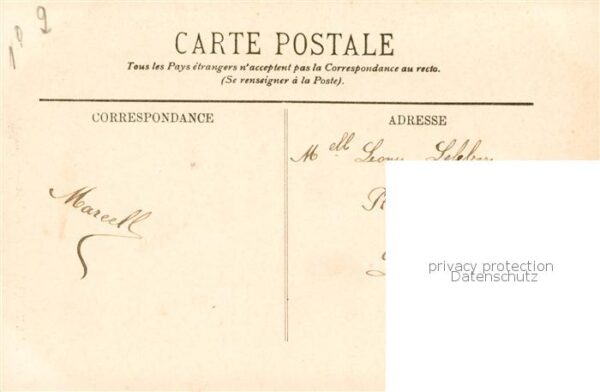 CARTE POSTALE
Tous les Pays étrangers n'acceptent pas la Correspondance au recto.
(Se renseigner à la Poste).
CORRESPONDANCE
ADRESSE
Mell
Marcell
privacy protection
Datenschutz